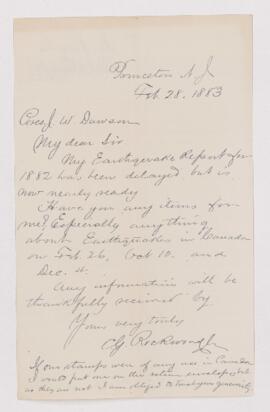 Princeton N J
Feb. 28. 1883
Pres J. W. Dawson
My dear Sir
My Earthquake Report for
1882 has been delayed but is
now nearly ready
Have you any items for
me? Especially anything
about Earthquakes in Canada
on Feb 26, Oct 10. and
Dec. 4.
Any information will be
thankfully received by
Yours very truly
C G Rockwood Jr
If our stamps were of any use in Canada
I would put one on the return envelope but
as they are not I am obliged to trust your generosity